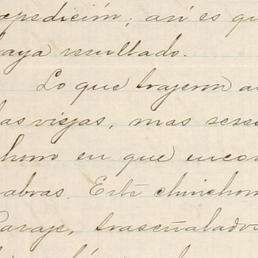 expedición; así es qu
haya resultado.
Lo que trajeron a
las viejas, mas
en que
abras. Este chinchon
Paraje, trasseñalados